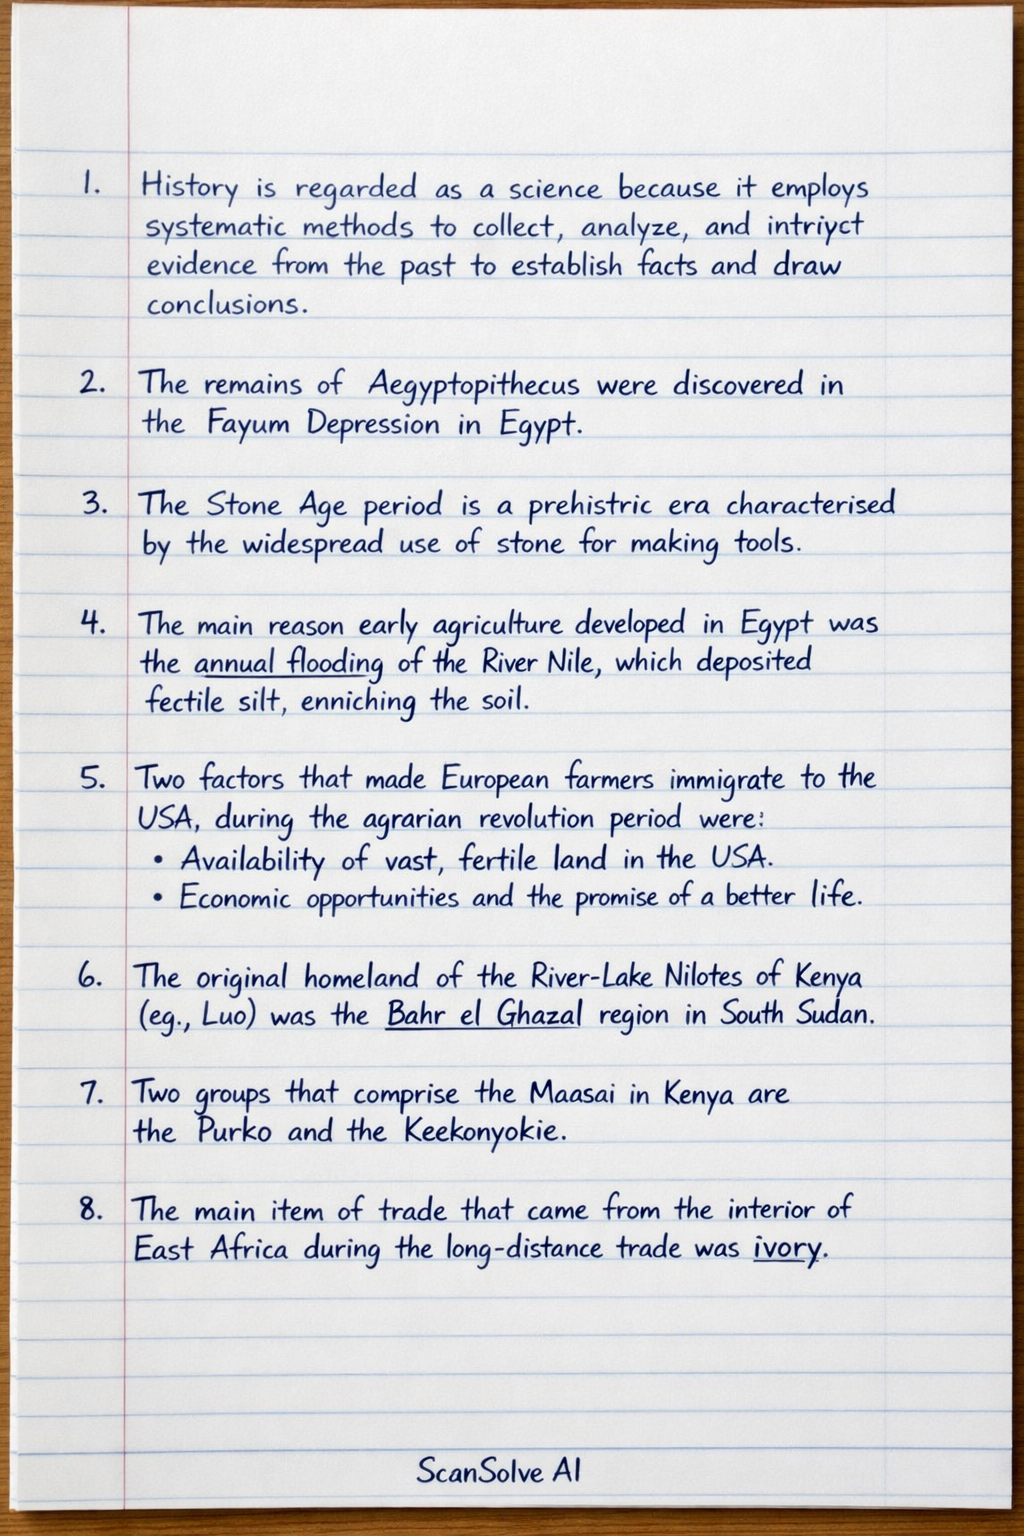 1. History is regarded as a science because it employs
systematic methods to collect, analyze, and intriyct
evidence from the past to establish facts and draw
conclusions.
2. The remains of Aegyptopithecus were discovered in
the Fayum Depression in Egypt.
3. The Stone Age period is a prehistric era characterised
by the widespread use of stone for making tools.
4. The main reason early agriculture developed in Egypt was
the annual flooding of the River Nile, which deposited
fectile silt, enniching the soil.
5. Two factors that made European farmers immigrate to the
USA, during the agrarian revolution period were:
• Availability of vast, fertile land in the USA.
• Economic opportunities and the promise of a better life.
6. The original homeland of the River-Lake Nilotes of Kenya
(eg., Luo) was the Bahr el Ghazal region in South Sudan.
7. Two groups that comprise the Maasai in Kenya are
the Purko and the Keekonyokie.
8. The main item of trade that came from the interior of
East Africa during the long-distance trade was ivory.
ScanSolve AI